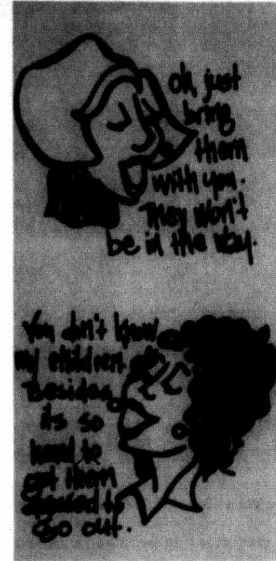 oh, just
bring
them
with you.
They won't
be in the way.
You don't know
my children.
Besides,
its so
hard to
get them
dressed to
go out.